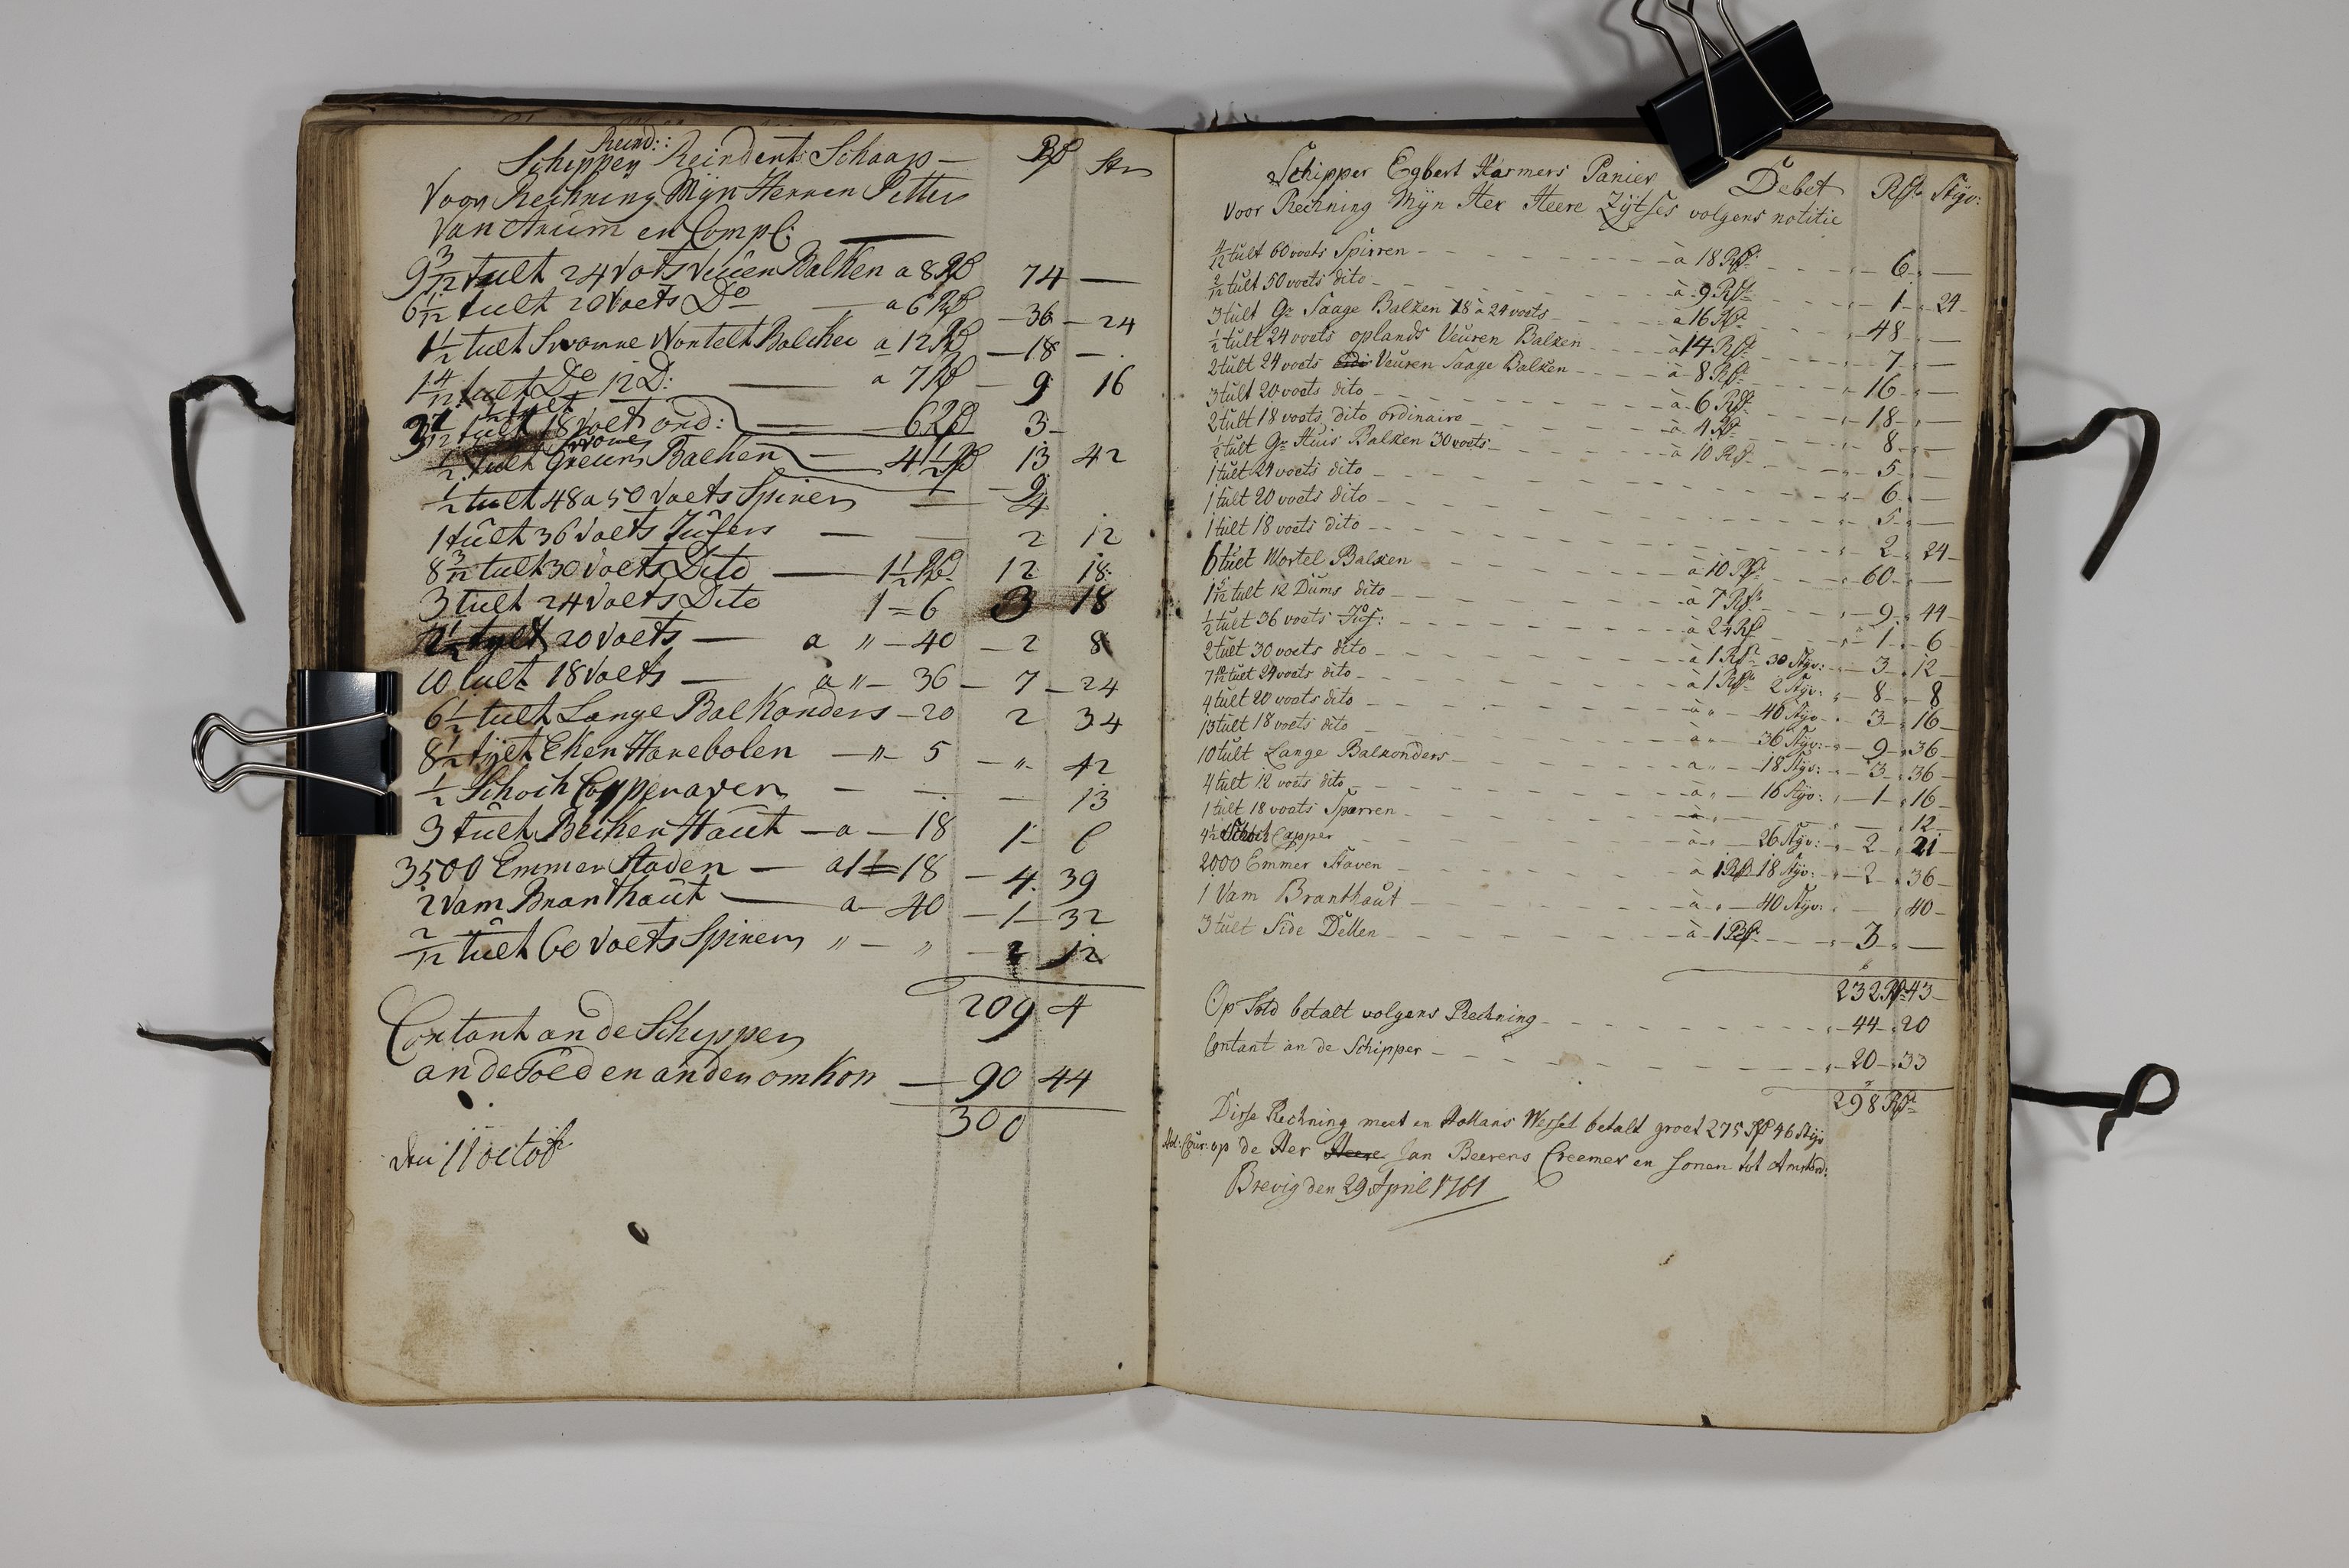 Reind::
Schipper Reindert Schaap —
Voor Rechning Mijn Herren Pitter
Van Arium en Compl:
Rd Stv
9 3/12 tult 24 Vots Veuren Balken a 8 Rd 74 —
6 1/12 tult 20 Voets Do — a 6 Rd — 36 — 24
1 1/2 tult Svvarre Wortelt Balcken a 12 Rd — 18 —
1 4/12 tult Do 12 D: — a 7 Rd — 9 16
1/2 tult 18 Voets ord: — 6 Rd 3 -
1/2 tult Greuns Balken — 4 1/2 Rd 13 42
1/2 tult 48 a 50 Voets Spirer — 9
4
1 tult 36 Voets Jufers — 2 12
8 3/12 tult 30 Voets Dito — 1 1/2 Rd 12 18
3 tult 24 Voets Dito 1 = 6 3 18
tylt 20 Voets — a " — 40 — 2 8
10 tult 18 Voets — a " — 36 — 7 — 24
6 1/2 tult Lange Balkonders — 20 2 34
8 1/2 tylt Eken Hanebolen — " — 5 — " 42
1/2 Schock Coppenaven — — 13
3 tult Beiken Haut — a — 18 1 — 6
3500 Emmer Staden — a 1 = 18 — 4 39
2 Vam Branthaut — a — 40 — 1 — 32
2/12 tult 60 Voets Spirers " — " — 2 12
209 4
Contant an de Schipper
an de Toed en ander omkon — 90 44
300
den 11 octob
Schipper Egbert Harmers Panier Debet Rd Stÿv:
Voor Rechning Mÿn Her Heere Zÿtses volgens notitie
4/12 tult 60 voets Spirren — à 18 Rd — 6 —
2/12 tult 50 voets dito — à 9 Rd — 1 — 24
3 tult Gr Saage Balken 18 à 24 voets — à 16 Rd — 48 —
1/2 tult 24 voets oplands Veuren Balken — à 14 Rd — 7 —
2 tult 24 voets Veuren Saage Balken — à 8 Rd — 16 —
3 tult 20 voets dito — à 6 Rd — 18 —
2 tult 18 voets dito ordinaire — à 4 Rd — 8 —
1/2 tult Gr Huis Balken 30 voets — à 10 Rd — 5 —
1 tult 24 voets dito — 6 —
1 tult 20 voets dito — 5 —
1 tult 18 voets dito — 2 24
6 tult Wortel Balken — à 10 Rd — 60 —
1 5/12 tult 12 Dums dito — à 7 Rd — 9 44
1/2 tult 36 voets Juf: — à 2 1/4 Rd — 1 — 6
2 tult 30 voets dito — à 1 Rd 30 Stÿv: — 3 12
7 tult 24 voets dito — à 1 Rd 2 Stÿv: — 8 8
4 tult 20 voets dito — à " — 40 Stÿv — 3 16
13 tult 18 voets dito — à " — 36 Stÿv: — 9 36
10 tult Lange Balkonders — à " — 18 Stÿv: — 3 36
4 tult 12 voets dito — à " — 16 Stÿv: — 1 16
1 tult 18 voets Sparren — à " — 12
4 1/2 Schock Capper — à " — 26 Stÿv: — 2 21
2000 Emmer Staven — à 1 Rd 18 Stÿv: — 2 36
1 Vam Branthaut — à " — 40 Stÿv: 40
3 tult Side Dellen — à 1 Rd — 3 —
232 Rd 43
Op Told betalt volgens Rechning — 44 20
Contant an de Schipper — 20 33
298 Rd
Disse Rechning meet en Hollans Wessel betalt groet 275 Rd 46 Stÿv
Hol: Cour: op de Her Heere Jan Beerens Creemer en Sonen tot Amsterd:
Brevig den 29 April 1761